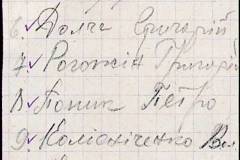 6. Долгч Григорій
7. Рогожін Григорій
8. Поник Петро
9. Колісніченко Вол.